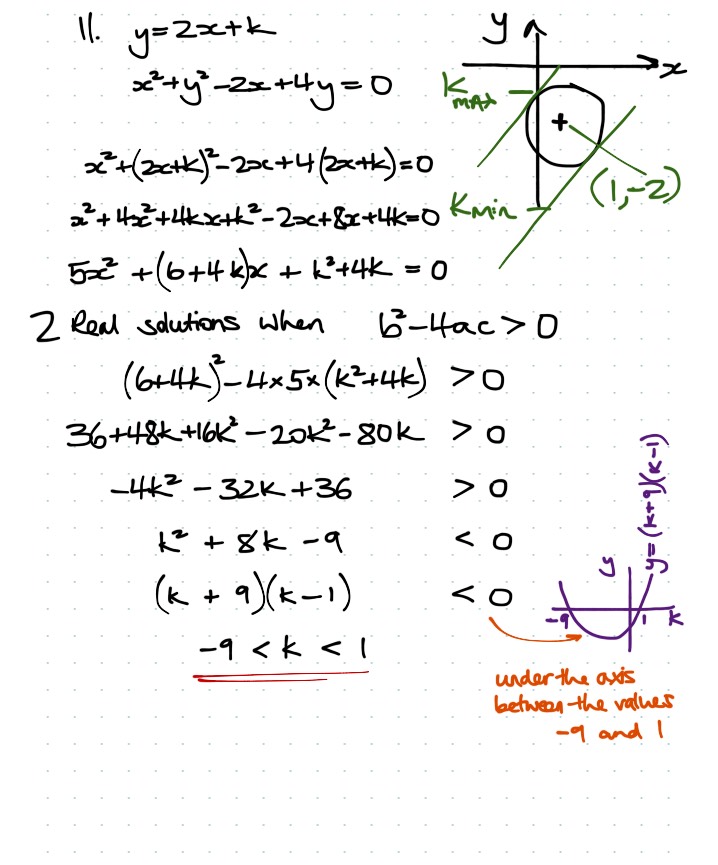 11. y=2x+k
x²+y²-2x+4y=0
x²+(2x+k)²-2x+4(2x+k)=0
x²+4x²+4kx+k²-2x+8x+4k=0
5x²+(6+4k)x+k²+4k=0
2 Real solutions when b²-4ac>0
(6+4k)²-4×5×(k²+4k) >0
36+48k+16k²-20k²-80k >0
-4k²-32k+36 >0
k²+8k-9 <0
(k+9)(k-1) <0
-9<k<1
y
x
Kmax
Kmin
(1,-2)
y=(k+9)(k-1)
y
-9
1
k
under the axis
between the values
-9 and 1